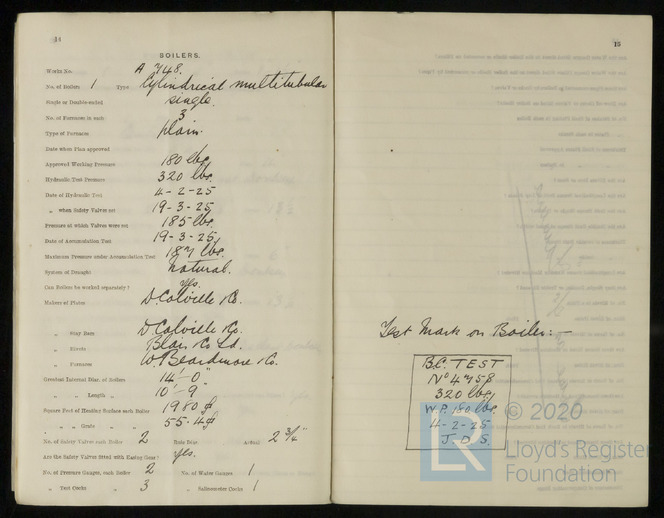 14
BOILERS.
Works No. A 748.
No. of Boilers 1 Type Cylindrical multitubular
Single or Double-ended single.
No. of Furnaces in each 3
Type of Furnaces plain.
Date when Plan approved
Approved Working Pressure 180 lbs.
Hydraulic Test Pressure 320 lbs.
Date of Hydraulic Test 4-2-25
„ when Safety Valves set 19-3-25
Pressure at which Valves were set 185 lbs.
Date of Accumulation Test 19-3-25
Maximum Pressure under Accumulation Test 187 lbs.
System of Draught Natural.
Can Boilers be worked separately? Yes.
Makers of Plates D. Colville & Co.
„ Stay Bars D. Colville & Co.
„ Rivets Blair & Co Ld.
„ Furnaces W. Beardmore & Co.
Greatest Internal Diam. of Boilers 14'-0"
„ „ Length „ 10'-9"
Square Feet of Heating Surface each Boiler 1980
„ „ Grate „ „ 55.4
No. of Safety Valves each Boiler 2 Rule Diam. Actual 2 3/4"
Are the Safety Valves fitted with Easing Gear? Yes.
No. of Pressure Gauges, each Boiler 2 No. of Water Gauges 1
„ Test Cocks „ 3 „ Salinometer Cocks 1
15
Test Mark on Boiler:-
B.C. TEST
No 4758
320 lbs.
W.P. 180 lbs.
4-2-25
J.D.S.
© 2020
LR
Lloyd's Register
Foundation